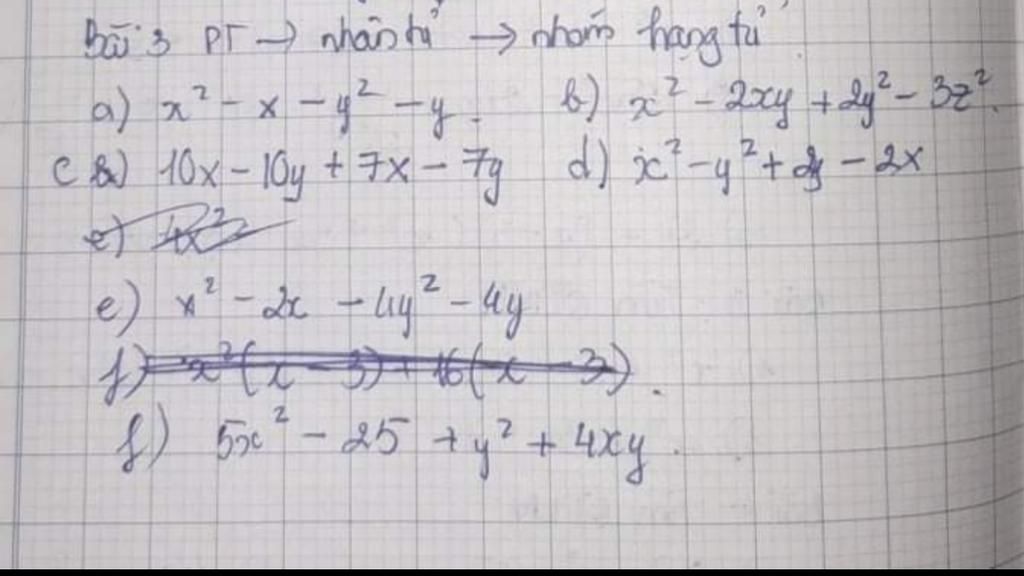 Bài 3 PT → nhân tử → nhóm hạng tử
a) x² - x - y² - y. b) x² - 2xy + 2y² - 3z².
c) 10x - 10y + 7x - 7y d) x² - y² + 2y - 2x
e) 4x²
e) x² - 2x - 4y² - 4y
f) x²(x - 3) + 16(x - 3).
f) 5x² - 25 + y² + 4xy.